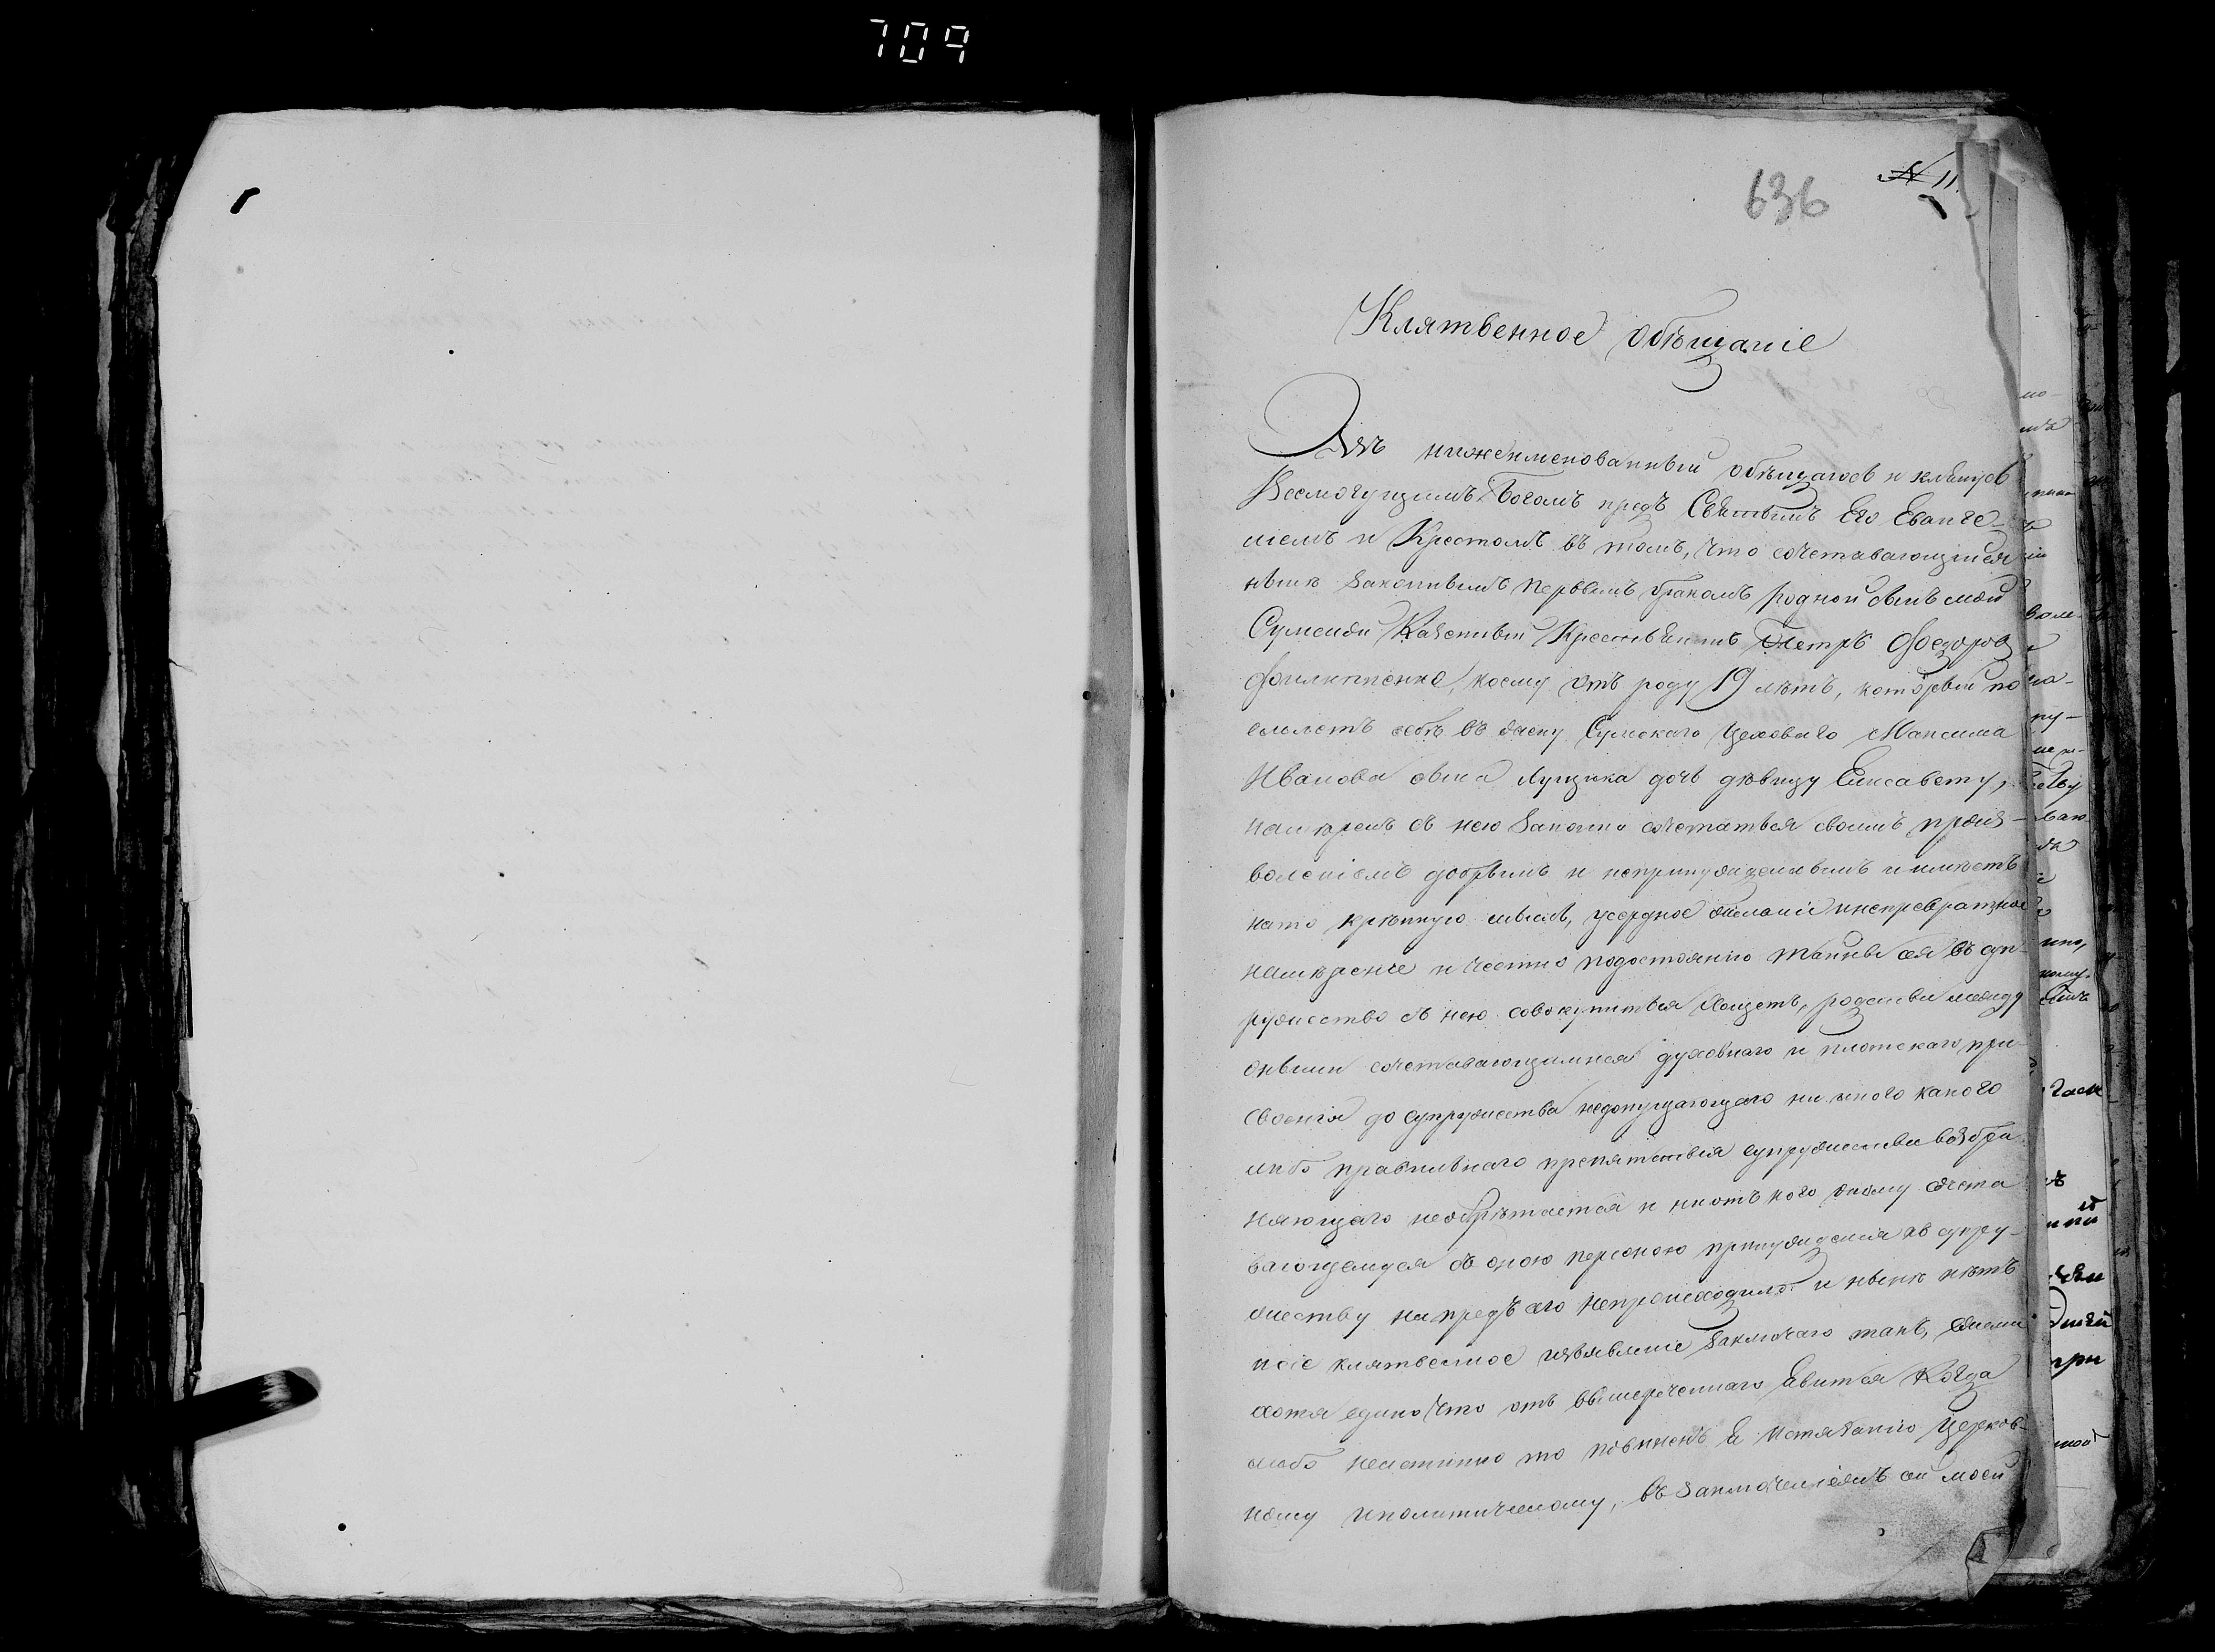 709
636
№ 11.
Клятвенное обѣщаніе
Азъ нижеименованный обѣщаюсь и клѣнусь
Всемогущимъ Богомъ предъ Святымъ Его Еванге-
ліемъ и Крестомъ въ томъ, что сочетавающійся
нынѣ законнымъ первымъ бракомъ родной сынъ мой
Сумской Казенный Крестьянинъ Петръ Федоровъ
Филиппенко, коему отъ роду 19 лѣтъ, который по
емлетъ себѣ въ жену Сумскаго Цеховаго Максима
Иванова сына Лущика дочь дѣвицу Елисавету,
намѣренъ съ нею законно сочетаться своимъ произ-
воленіемъ добрымъ и непринужденнымъ и имѣетъ
нато крѣпкую мысль, усердное желаніе инепревратное
намѣреніе и честно подостоянію тайны сея въ суп-
ружество съ нею совокупиться хощетъ, родства между
оными сочетавающимися духовнаго и плотскаго, при-
своенія до супружества недопущающаго ни иного какого
либо правильнаго препятствія супружества возбра
няющаго необрѣтается и ниотъ кого оному сочета
вающемуся съ оною персоною принужденія къ супру-
жеству напредъ сего непроисходило и нынѣ нѣтъ
сіе клятвенное изъявленіе заключаю такъ, ежели
хотя едино что отъ вышереченнаго явится когда
либо неистинно то повиненъ я истязанію Церков-
ному иполитическому, въ заключеніежъ сей моей